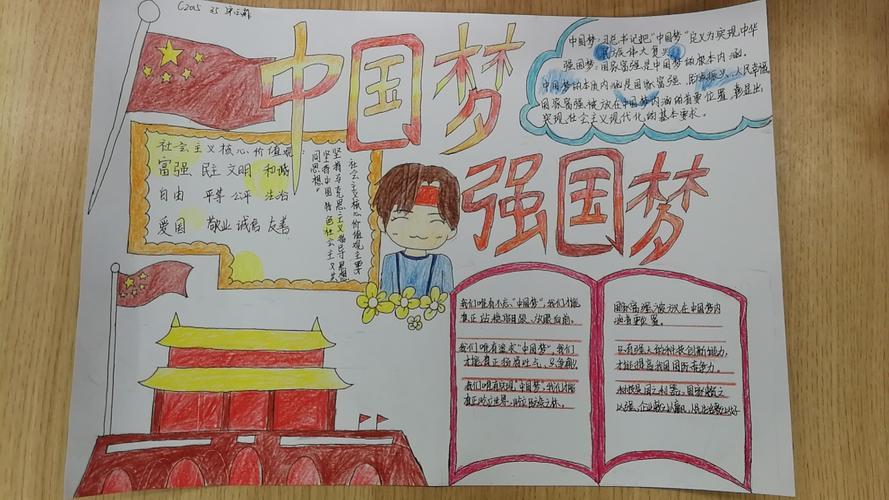 中国梦
强国梦
中国梦:习总书记把"中国梦"定义为实现中华
民族伟大复兴
强国梦:国家富强是中国梦的根本内涵。
中国梦的本质内涵是国家富强、民族振兴、人民幸福
国家富强被放在中国梦内涵的首要位置,彰显出
实现社会主义现代化的基本要求。
社会主义核心价值观:
富强 民主 文明 和谐
自由 平等 公平
爱国 敬业 诚信 友善
社会主义核心价值观主要
坚持马克思主义指导思想
坚持中国特色社会主义共
同思想。
我们唯有不忘"中国梦",我们才能
真正站稳脚跟、放眼向前。
我们唯有追求"中国梦",我们
才能真正扬眉吐气、
我们唯有实现"中国梦",我们才能
真正屹立世界、
国家富强被放在中国梦内
涵首要位置。
只有强大的科技创新能力,
才能提高我国国际竞争力。
科技是国之利器,国家赖之
以强,企业赖之以赢,人民生活赖之以好